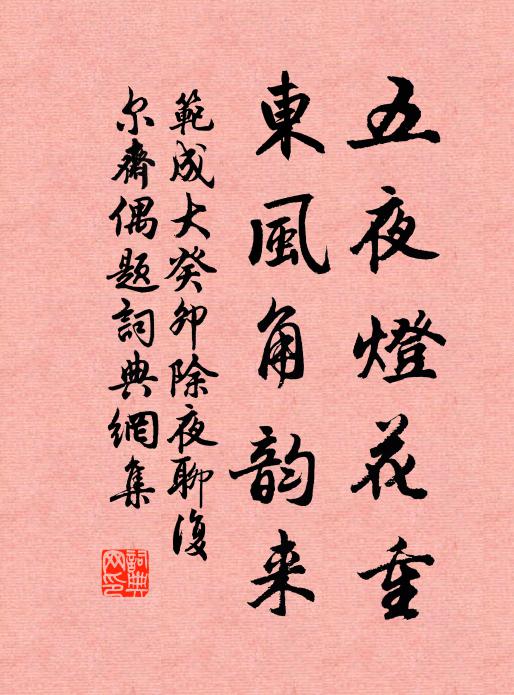 五夜燈花重
東風角韵来
範成大癸卯除夜聊復
尔齋偶題詞典網集
詞典網印